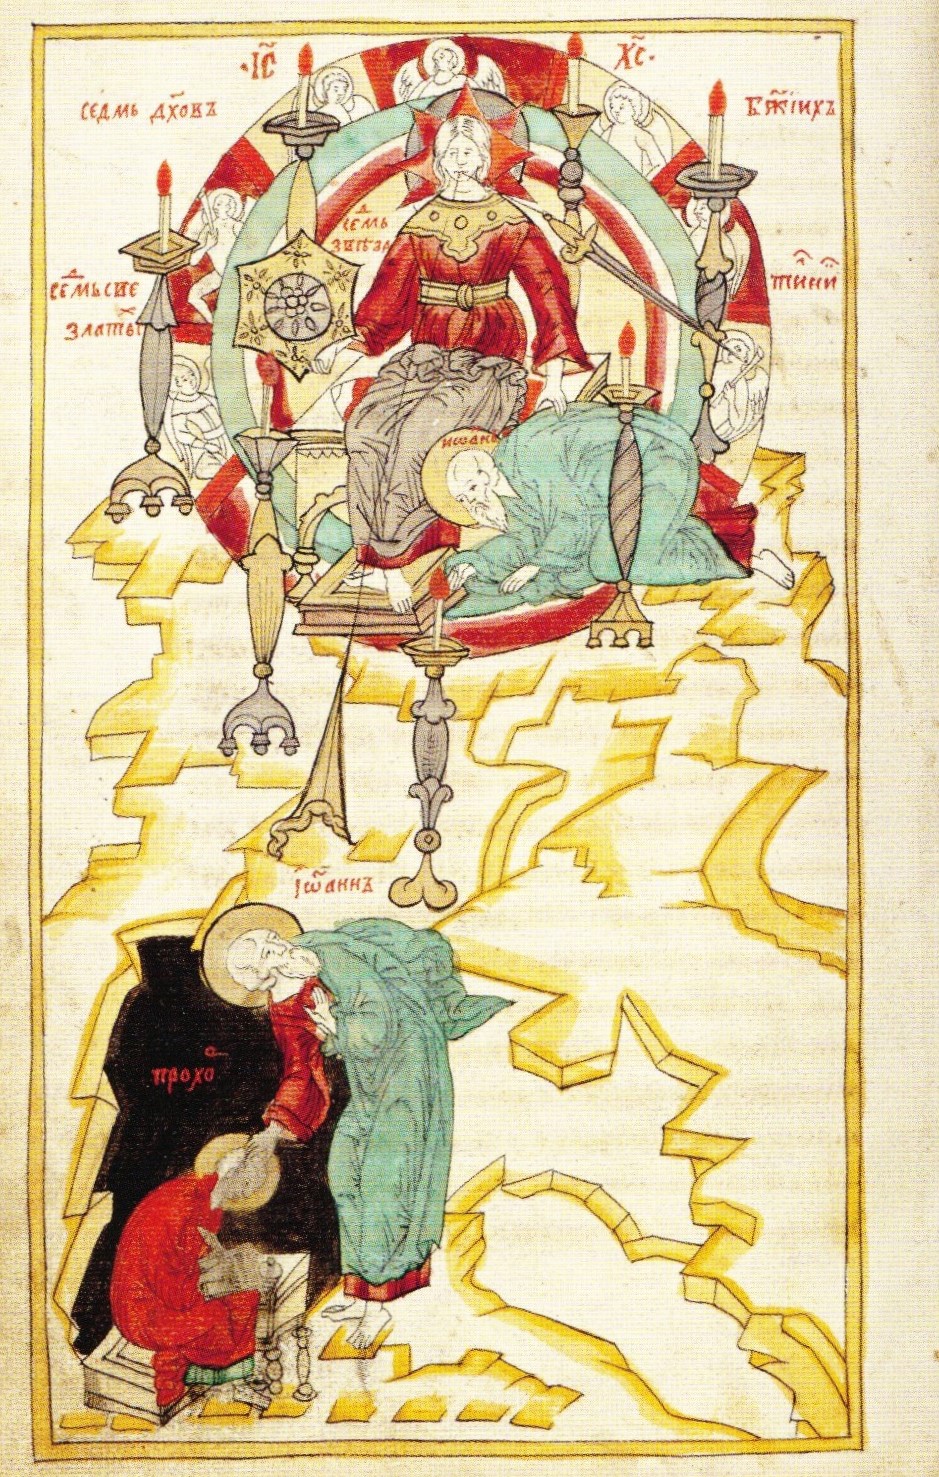 І҃С Х҃С
седмь дх҃овъ бж҃їихъ
сеⷣмь
звѣзд
сеⷣмь свѣ
златыⷯ
иѡанъ
і҆ѡ҃аннъ
прохоⷬ